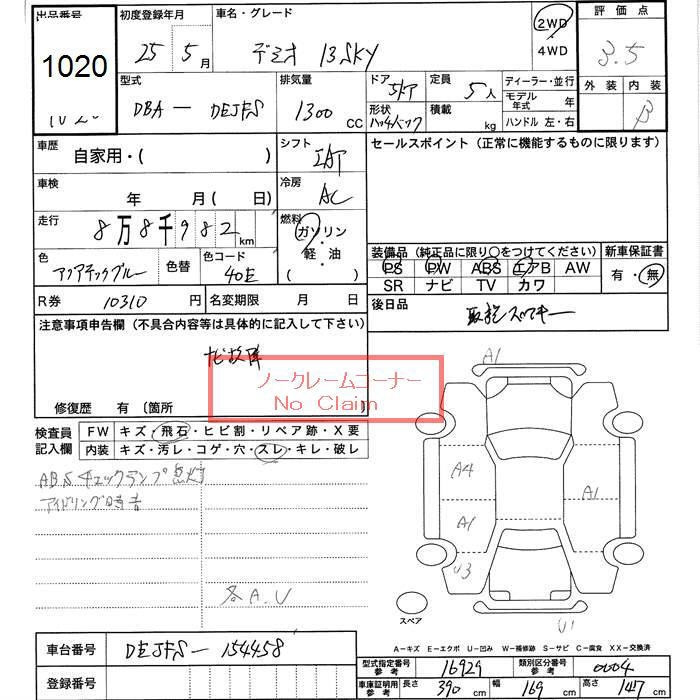 出品番号 初度登録年月 車名・グレード 評価点
1020 25年 5月 デミオ 13SKY 2WD 4WD 3.5
型式 排気量 ドア 定員 ディーラー・並行 外装 内装
DBA - DEJFS 1300 CC 5ドア 5人 モデル年式 年 B
形状 ハッチバック 積載 kg ハンドル 左・右
車歴 自家用・( ) シフト IAT セールスポイント (正常に機能するものに限ります)
車検 年 月 ( 日) 冷房 AC
走行 8万8千982km 燃料 ガソリン・軽油 ( )
装備品 (純正品に限り○をつけてください) 新車保証書
色 色替 色コード 40E PS PW ABS エアB AW 有・無
SR ナビ TV カワ
R券 10310円 名変期限 月 日 後日品
注意事項申告欄 (不具合内容等は具体的に記入して下さい) 取説 スペアキー
ナビ故障
ノークレームコーナー
No Claim
修復歴 有 〔箇所 〕
検査員記入欄 FW キズ・飛石・ヒビ割・リペア跡・X要
内装 キズ・汚レ・コゲ・穴・スレ・キレ・破レ
ABSチェックランプ点灯
アイドリング時音
各A.U
A1
A4
A1
A1
U3
U1
スペア
A-キズ E-エクボ U-凹み W-補修跡 S-サビ C-腐食 XX-交換済
車台番号 DEJFS - 154458
型式指定番号 参考 16929 類別区分番号 参考 0004
登録番号
車庫証明用 参考 長さ 390cm 幅 169cm 高さ 147cm